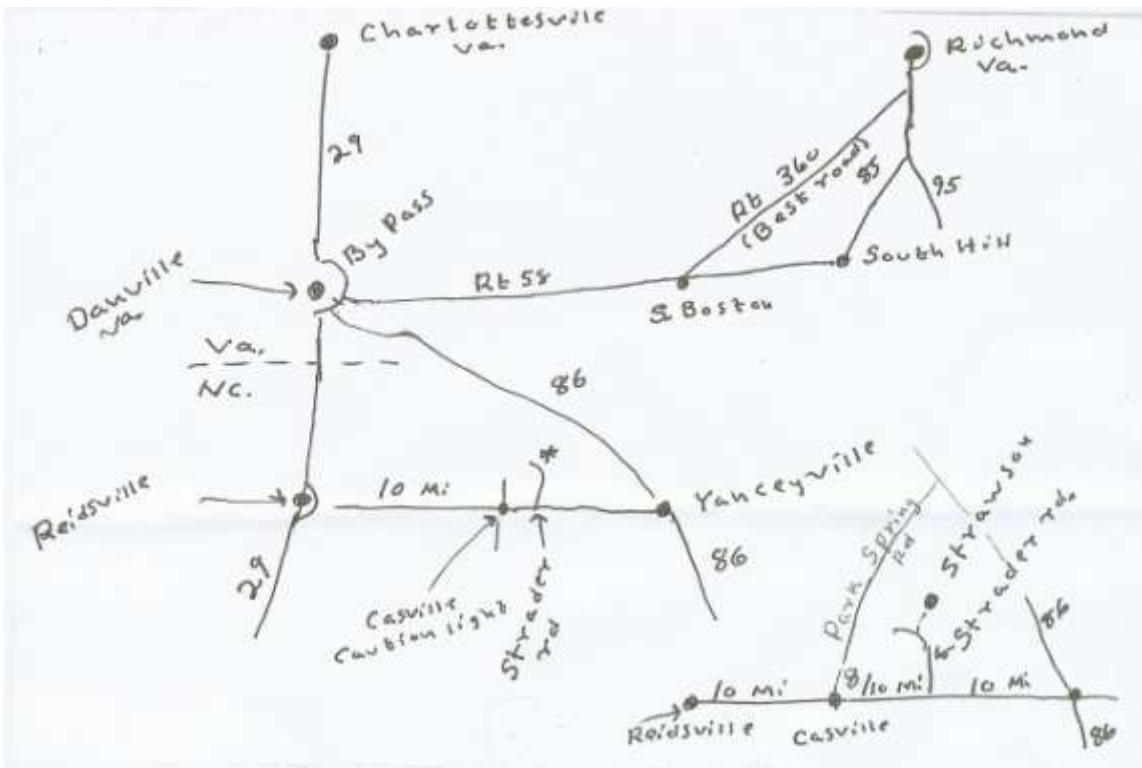 Charlottesville
Va.
Richmond
Va.
29
Rt 360
(Best road)
85
95
By Pass
Danville
Va.
Rt 58
S Boston
South Hill
Va.
NC.
86
Reidsville
10 Mi
*
Yanceyville
29
86
Casville
Caution light
Strader
rd
Park Spring
Rd
Strawson
Strader rd.
86
10 Mi
8/10 Mi
10 Mi
Reidsville
Casville
86